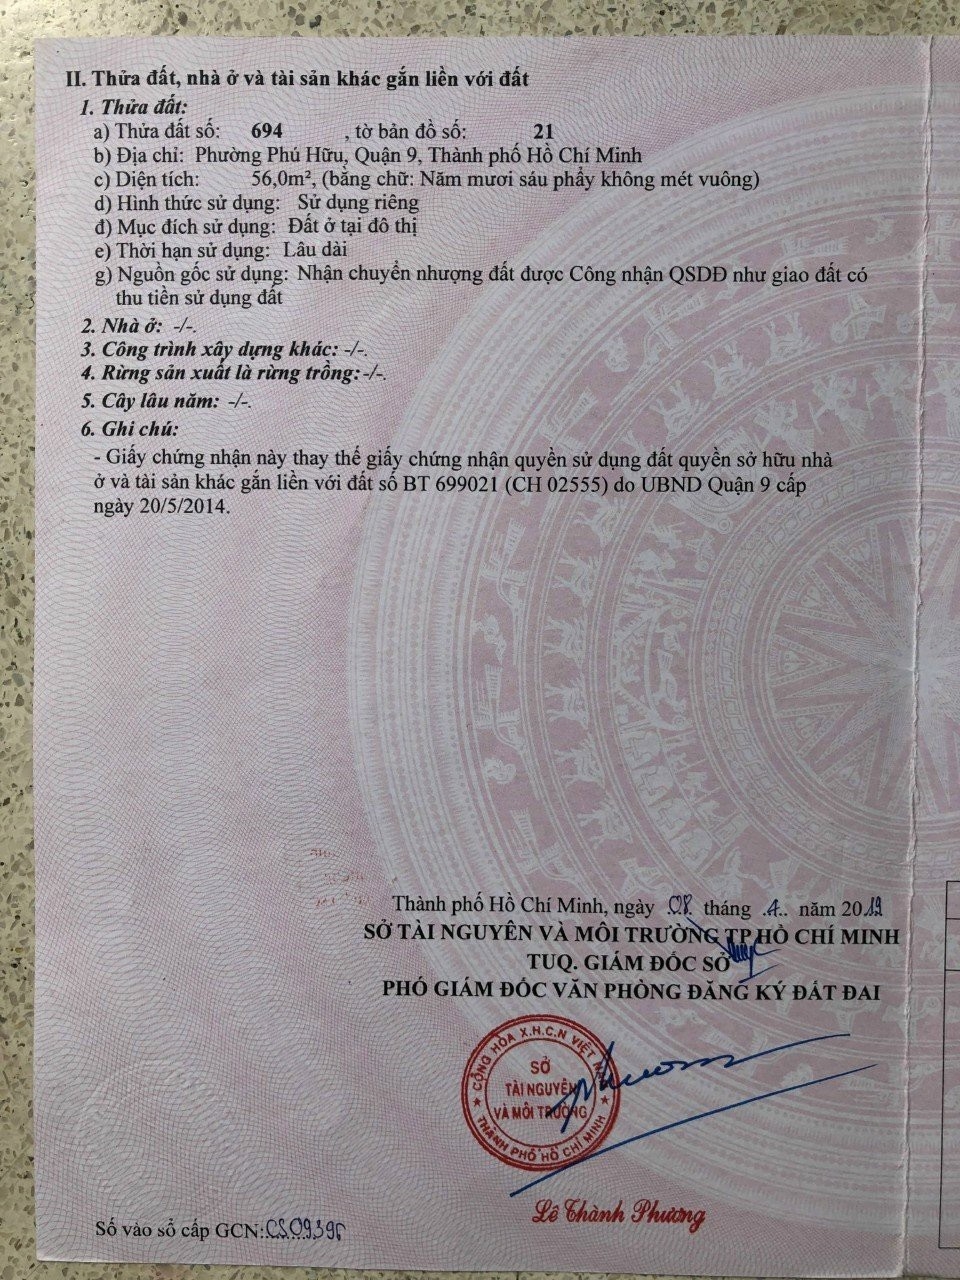 II. Thửa đất, nhà ở và tài sản khác gắn liền với đất
1. Thửa đất:
a) Thửa đất số: 694 , tờ bản đồ số: 21
b) Địa chỉ: Phường Phú Hữu, Quận 9, Thành phố Hồ Chí Minh
c) Diện tích: 56,0m², (bằng chữ: Năm mươi sáu phẩy không mét vuông)
d) Hình thức sử dụng: Sử dụng riêng
đ) Mục đích sử dụng: Đất ở tại đô thị
e) Thời hạn sử dụng: Lâu dài
g) Nguồn gốc sử dụng: Nhận chuyển nhượng đất được Công nhận QSDĐ như giao đất có
thu tiền sử dụng đất
2. Nhà ở: -/-.
3. Công trình xây dựng khác: -/-.
4. Rừng sản xuất là rừng trồng: -/-.
5. Cây lâu năm: -/-.
6. Ghi chú:
- Giấy chứng nhận này thay thế giấy chứng nhận quyền sử dụng đất quyền sở hữu nhà
ở và tài sản khác gắn liền với đất số BT 699021 (CH 02555) do UBND Quận 9 cấp
ngày 20/5/2014.
Thành phố Hồ Chí Minh, ngày 08 tháng 4 năm 2019
SỞ TÀI NGUYÊN VÀ MÔI TRƯỜNG TP HỒ CHÍ MINH
TUQ. GIÁM ĐỐC SỞ
PHÓ GIÁM ĐỐC VĂN PHÒNG ĐĂNG KÝ ĐẤT ĐAI
CỘNG HÒA X.H.C.N VIỆT NAM
SỞ
TÀI NGUYÊN
VÀ MÔI TRƯỜNG
THÀNH PHỐ HỒ CHÍ MINH
Lê Thành Phương
Số vào sổ cấp GCN: